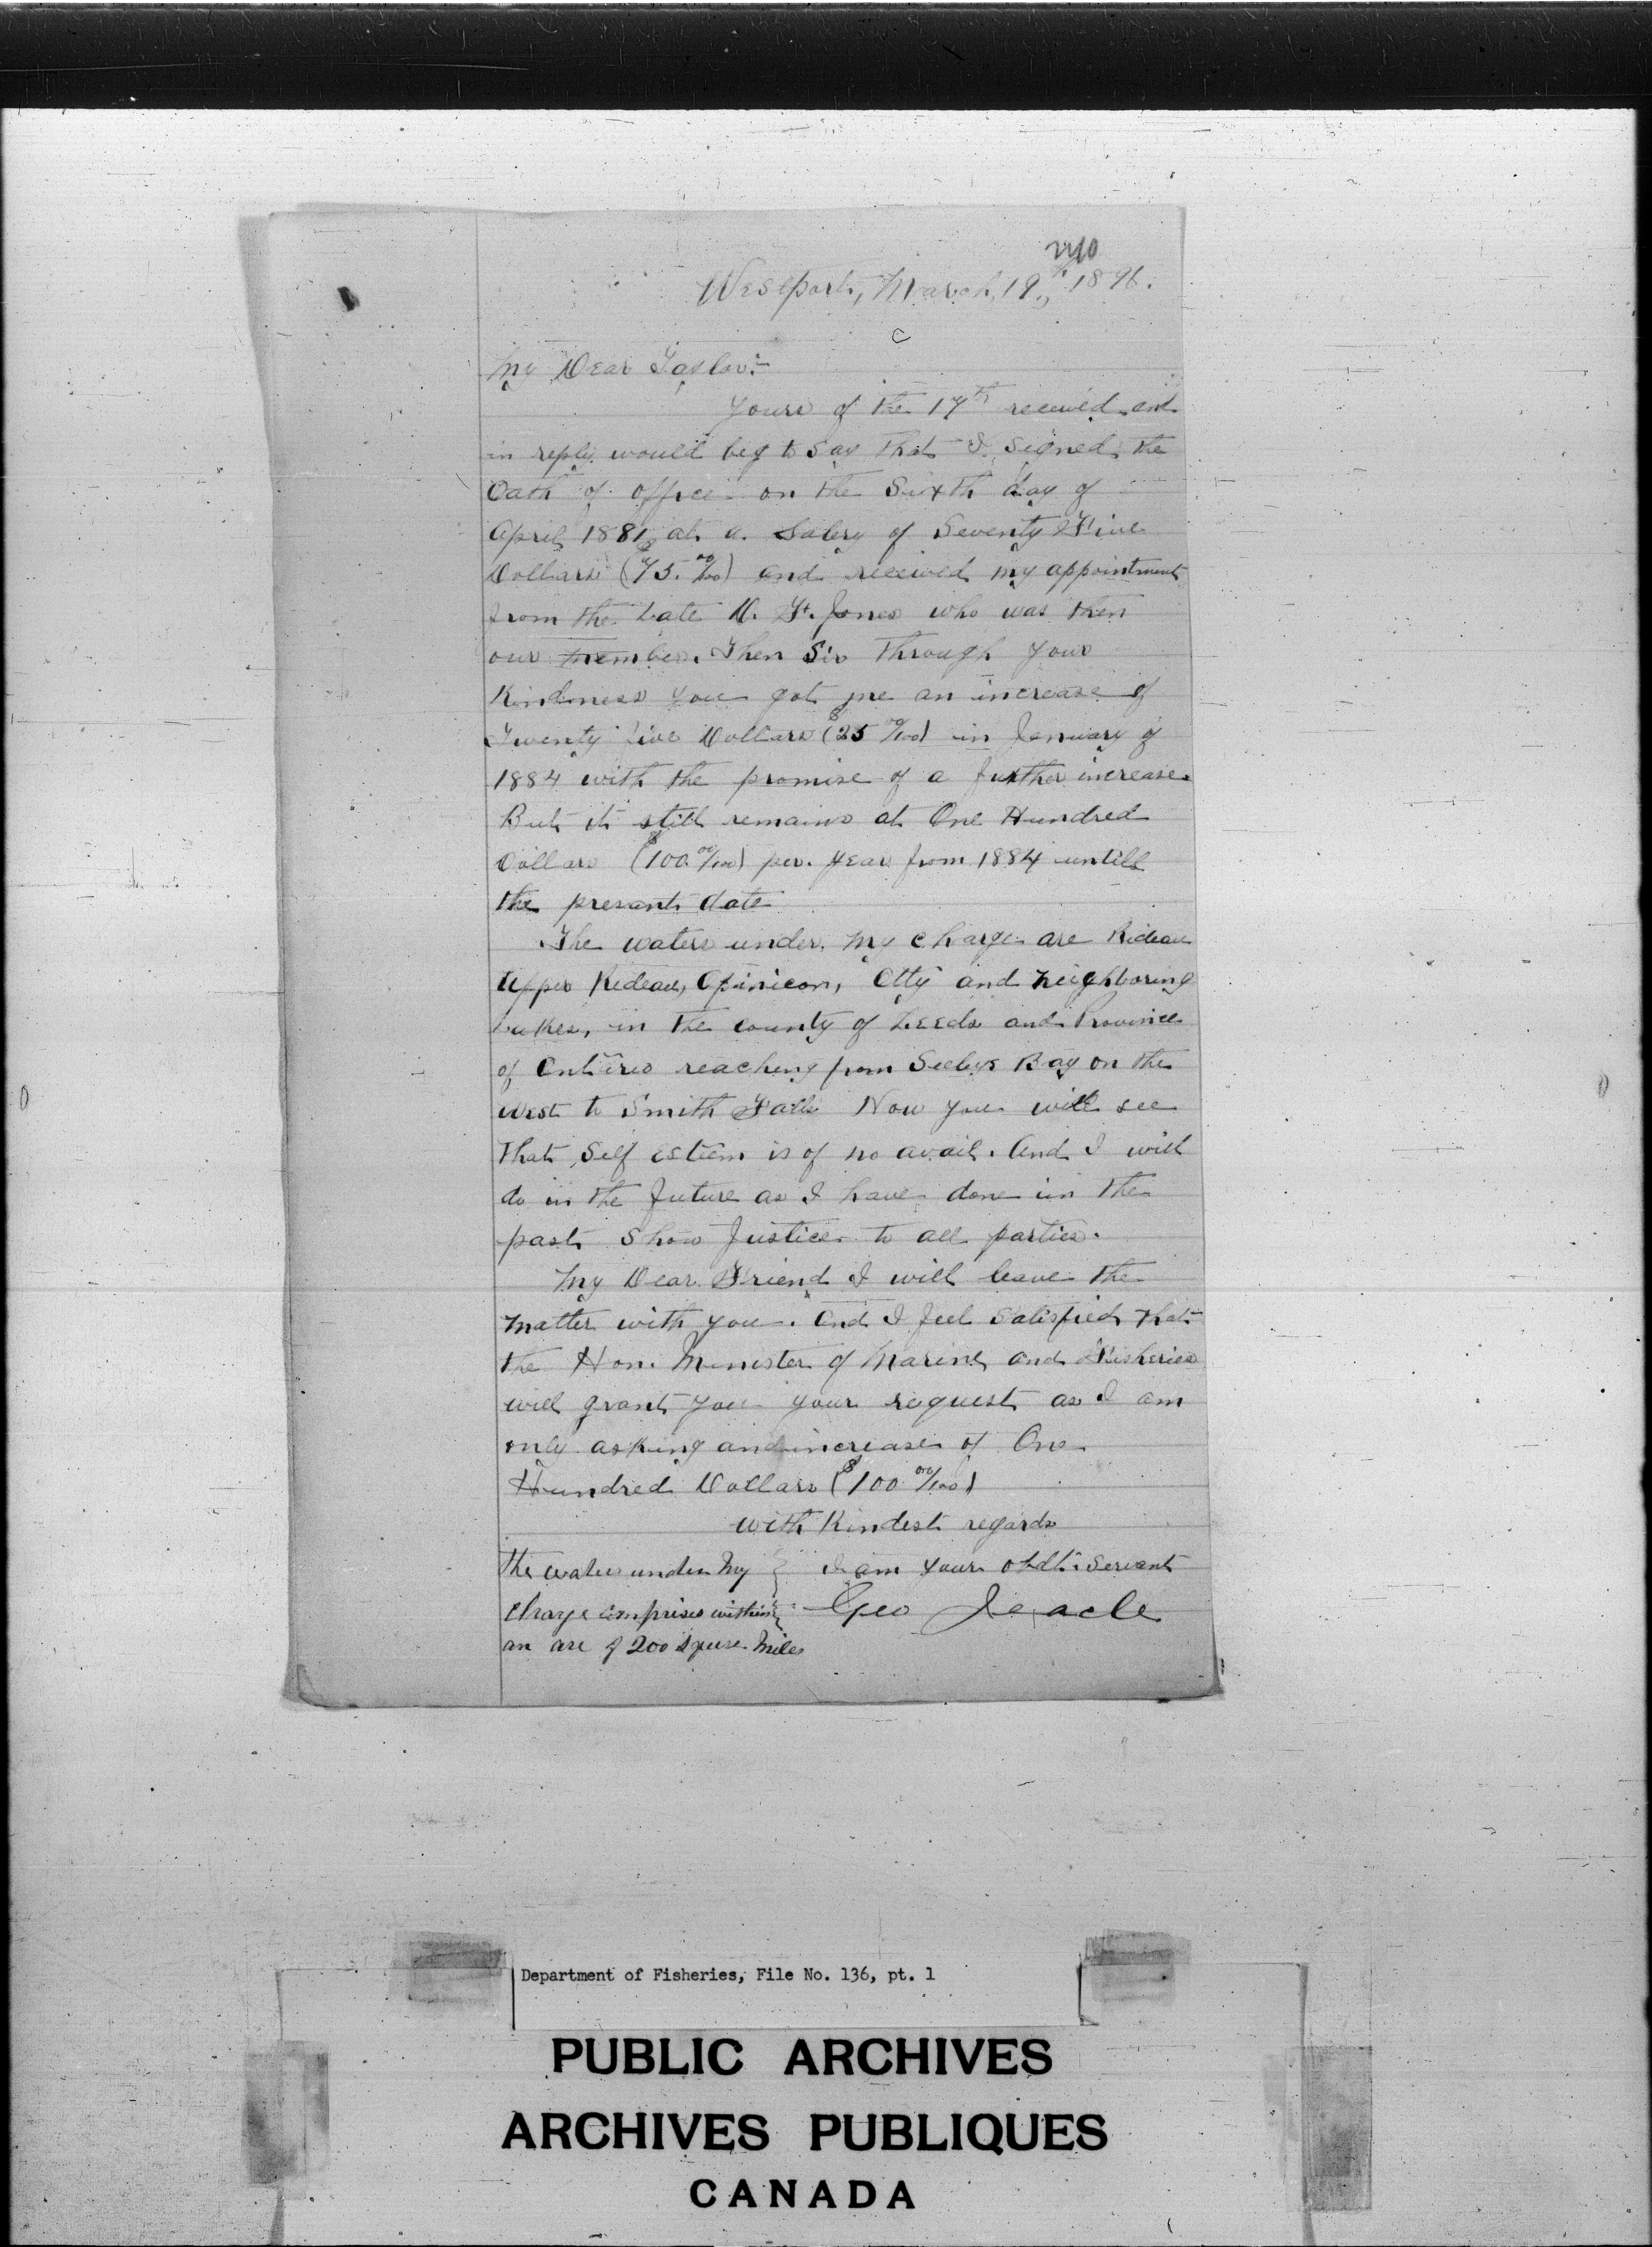 2210
Westport, March, 19th, 1896.
My Dear Taylor:
Yours of the 17th received and
in reply would beg to say that I signed the
Oath of office on the Sixth day of
April 1881 at a Salery of Seventy Five
Dollars ($75.00/100) and received my appointment
from the Late D. F. Jones who was then
our member. Then Sir through your
Kindness you got me an increase of
Twenty five Dollars ($25 00/100) in January of
1884 with the promise of a further increase.
But it still remains at One Hundred
Dollars ($100.00/100) per. year from 1884 untill
the presant date
The waters under my charge are Rideau
Upper Rideau, Opinicon, Otty and neighboring
Lakes, in the county of Leeds and Province
of Ontario reaching from Seelys Bay on the
west to Smith Falls Now you will see
that Self esteem is of no avail. And I will
do in the future as I have done in the
past Show Justice to all parties.
My Dear Friend I will leave the
matter with you. And I feel Satisfied that
the Hon. Minister of Marine and Fisheries
will grant you your request as I am
only asking and increase of One
Hundred Dollars ($100 00/100)
with Kindest regards
the water under my } I am your obdt. Servant
charge comprises within } Geo Jeacle
an are of 200 squre miles
Department of Fisheries, File No. 136, pt. 1
PUBLIC ARCHIVES
ARCHIVES PUBLIQUES
CANADA